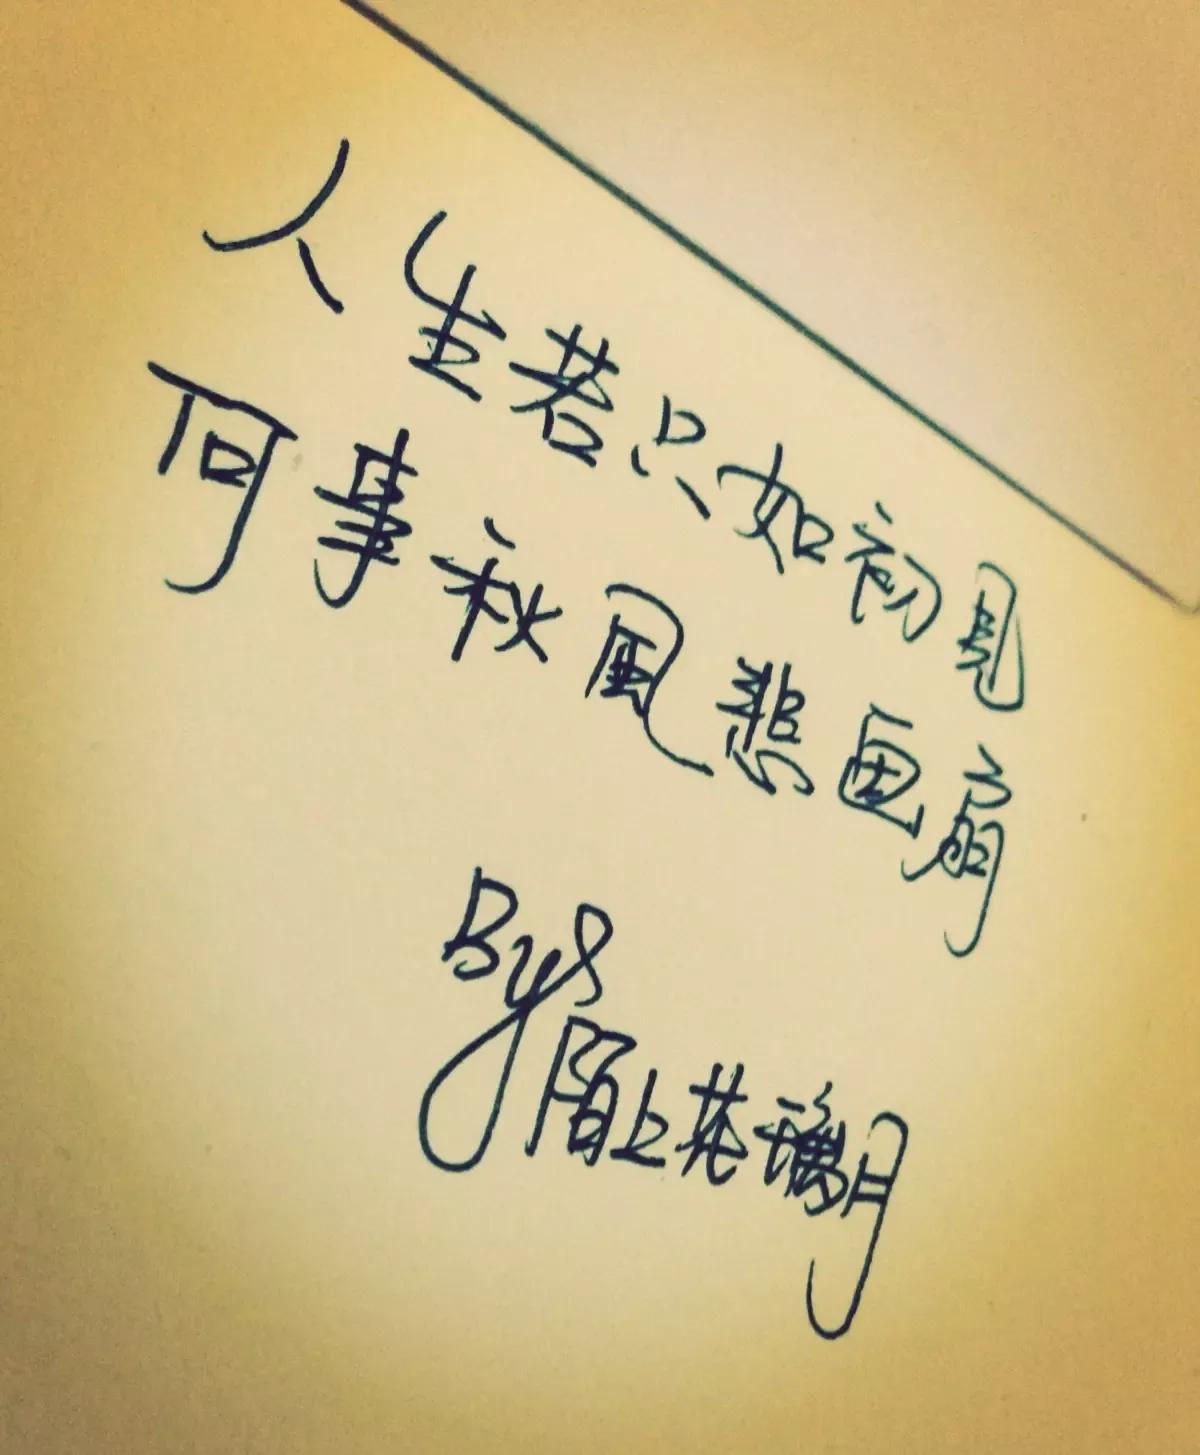 人生若只如初見
何事秋風悲画扇
By8
陌上花璃月